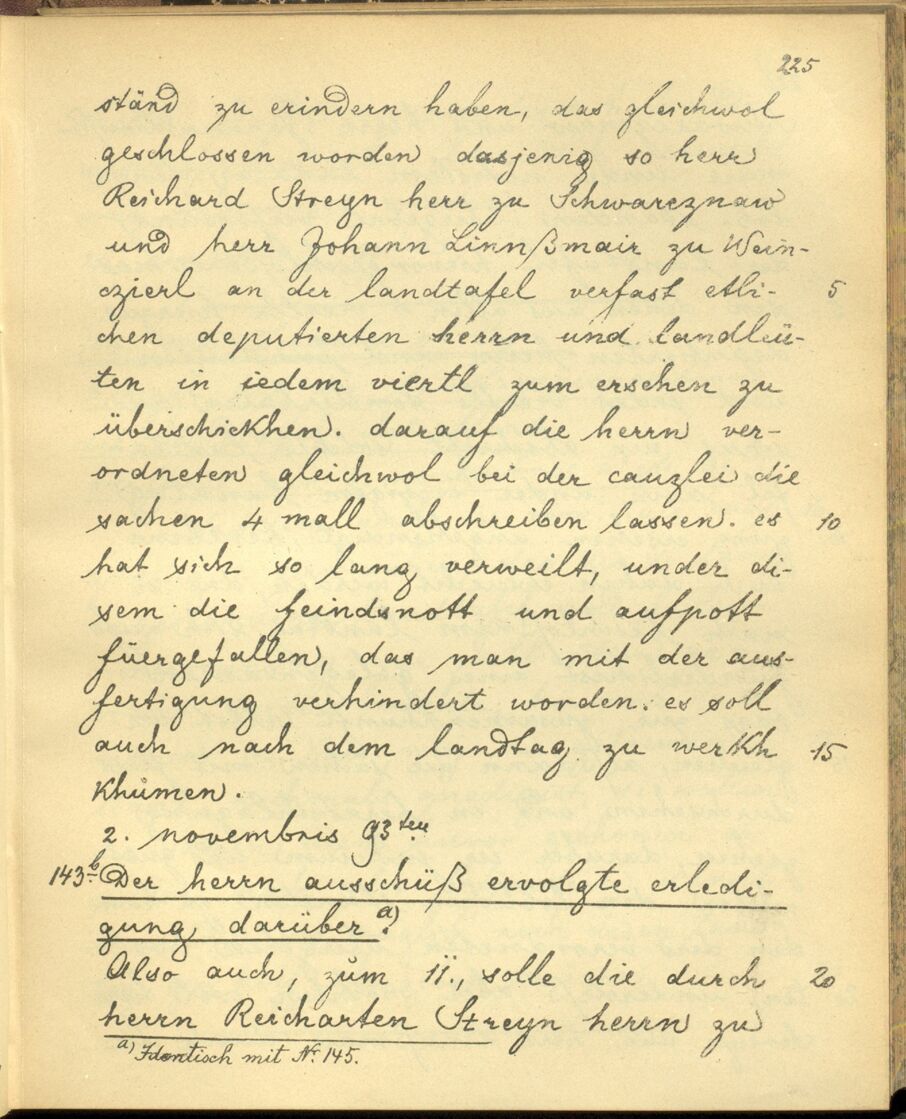 225
ständ zu erindern haben, das gleichwol
geschlossen worden dasjenig so herr
Reichard Streyn herr zu Schwarcznaw
und herr Johann Linnßmair zu Wein-
czierl an der landtafel verfast etli- 5
chen deputierten herrn und landleü-
ten in iedem viertl zum ersehen zu
überschickhen. darauf die herrn ver-
ordneten gleichwol bei der canzlei die
sachen 4 mall abschreiben lassen. es 10
hat sich so lang verweilt, under di-
sem die feindsnott und aufpott
füergefallen, das man mit der aus-
fertigung verhindert worden. es soll
auch nach dem landtag zu werkh 15
khůmen.
2. novembris 93ten
143b Der herrn ausschüß ervolgte erledi-
gung darüber a).
Also auch, zům 11., solle die durch 20
herrn Reicharten Streyn herrn zu
a) Identisch mit No. 145.